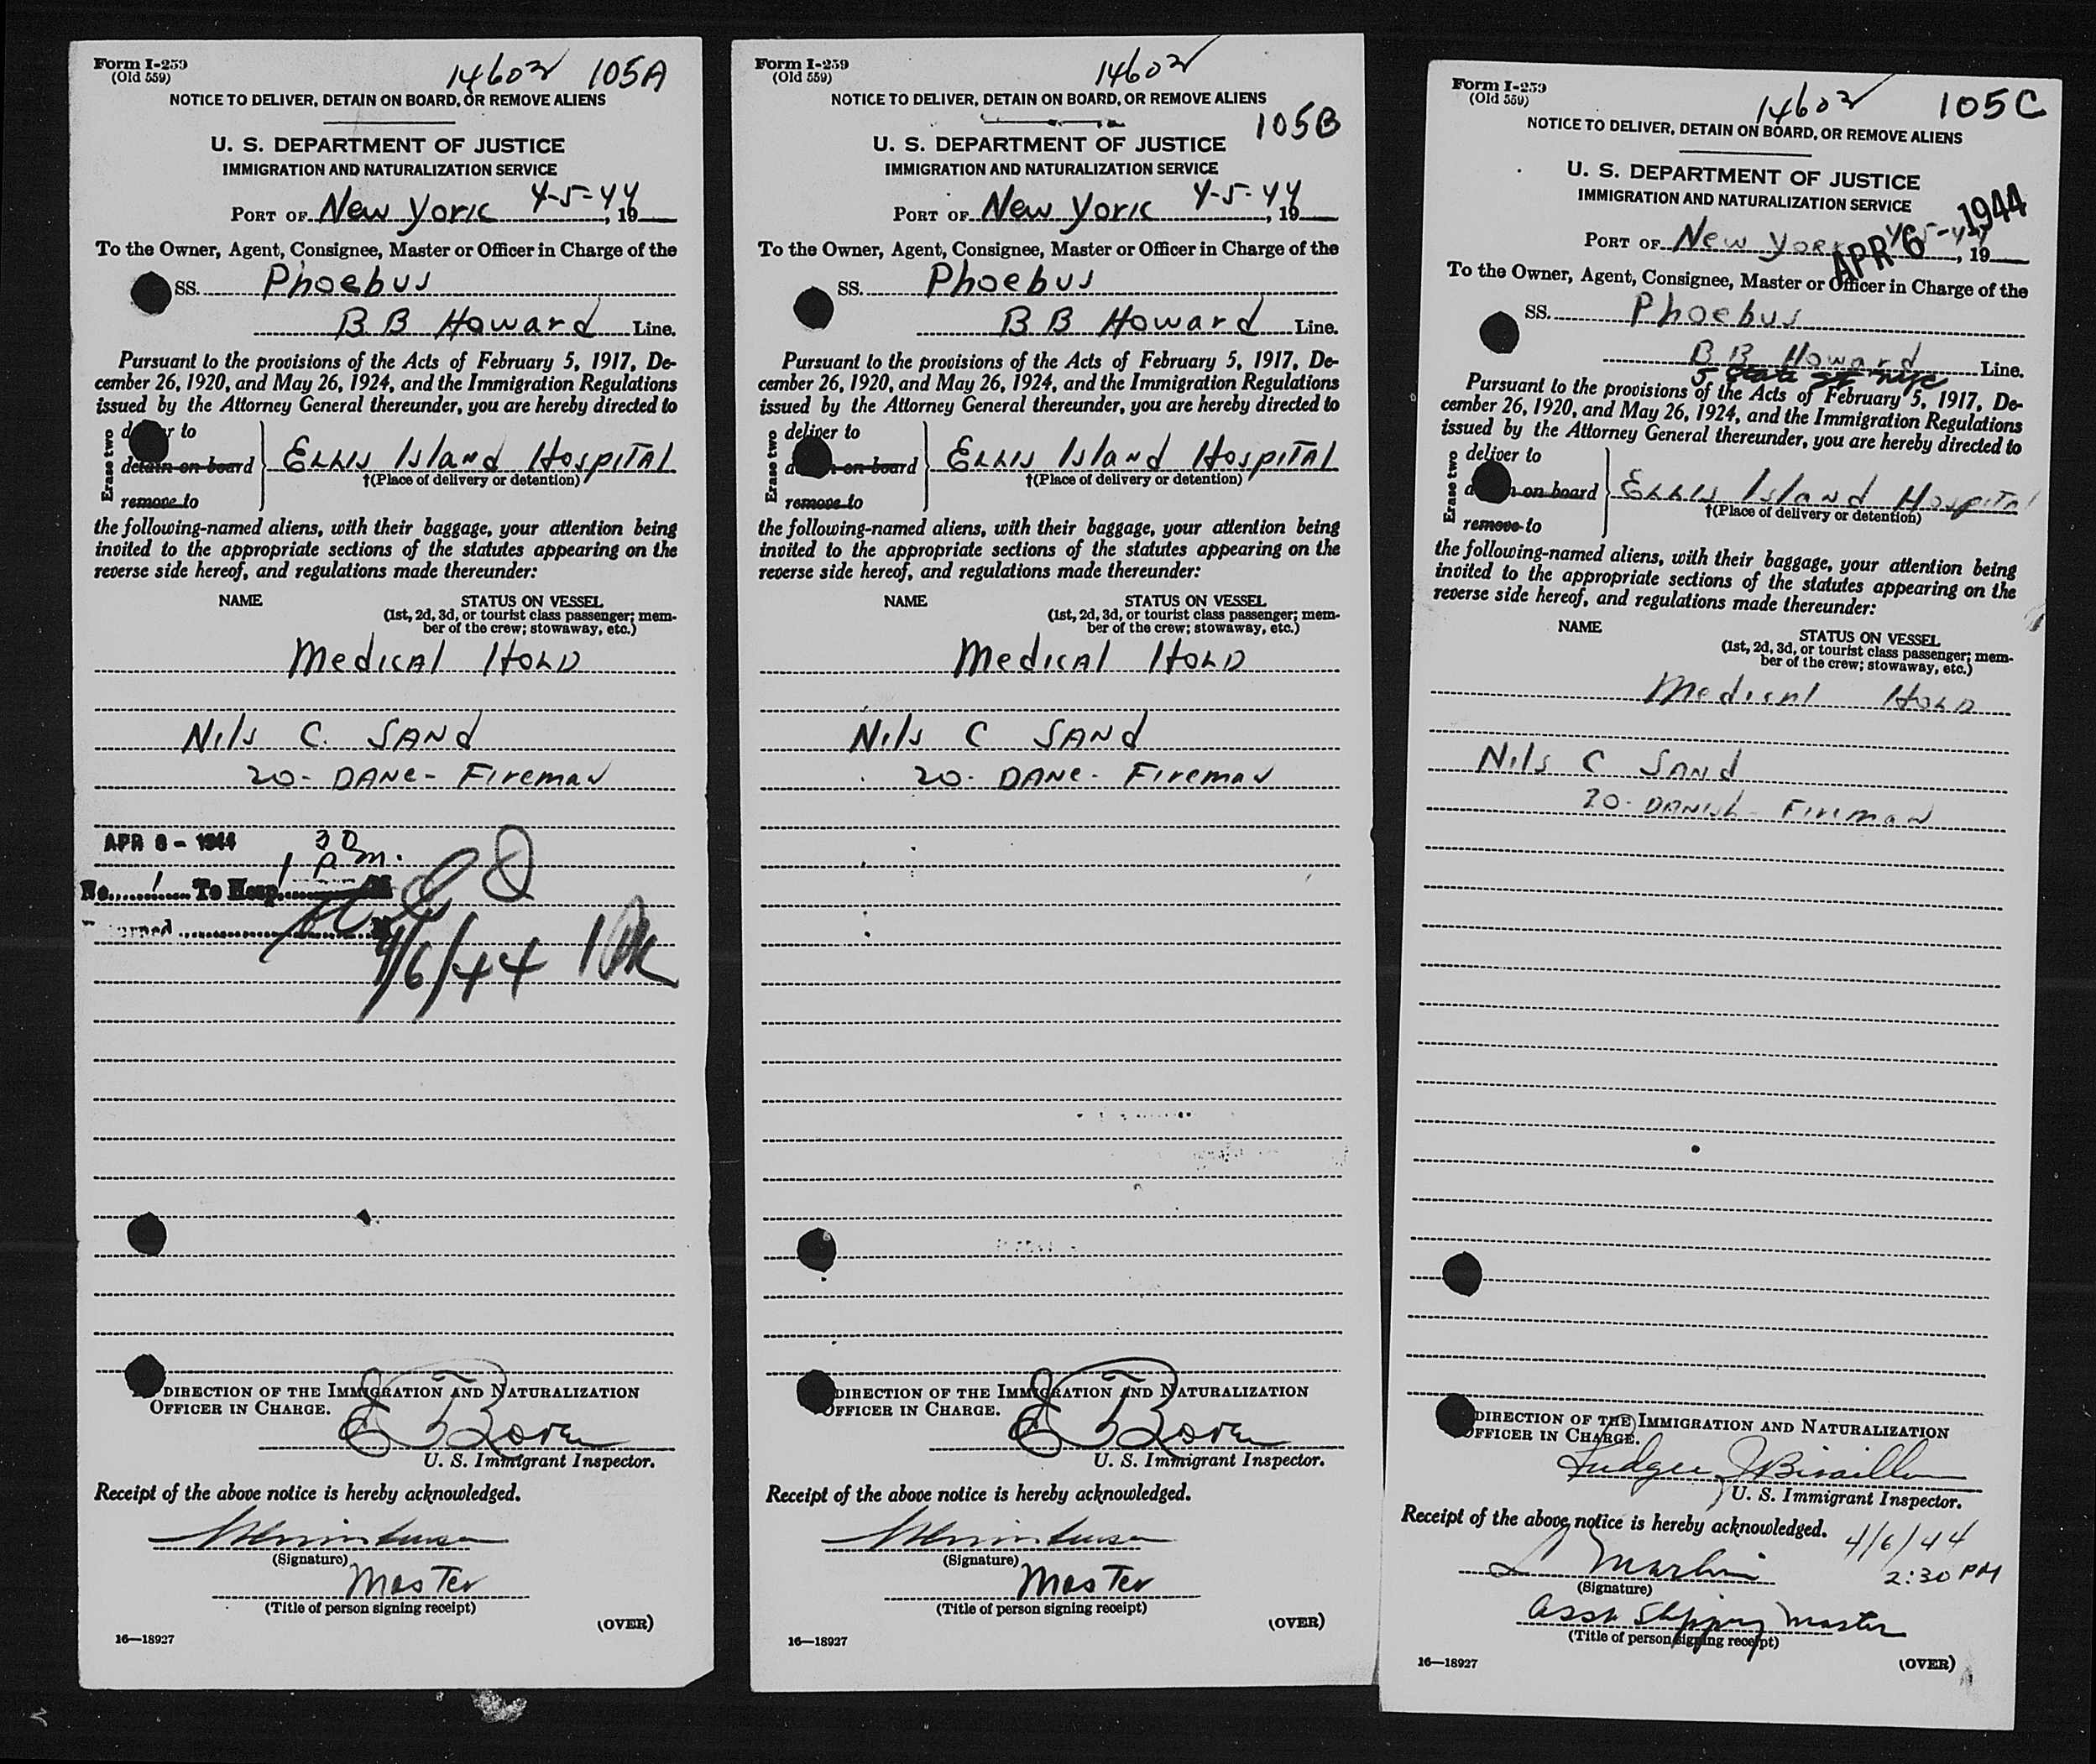 Form I-259
(Old 559)
14602 105A
NOTICE TO DELIVER, DETAIN ON BOARD, OR REMOVE ALIENS
U. S. DEPARTMENT OF JUSTICE
IMMIGRATION AND NATURALIZATION SERVICE
PORT OF New York 4-5-44, 19
To the Owner, Agent, Consignee, Master or Officer in Charge of the
SS. Phoebus
B B Howard Line.
Pursuant to the provisions of the Acts of February 5, 1917, De-
cember 26, 1920, and May 26, 1924, and the Immigration Regulations
issued by the Attorney General thereunder, you are hereby directed to
Erase two
deliver to
detain on board
remove to
Ellis Island Hospital
†(Place of delivery or detention)
the following-named aliens, with their baggage, your attention being
invited to the appropriate sections of the statutes appearing on the
reverse side hereof, and regulations made thereunder:
NAME STATUS ON VESSEL
(1st, 2d, 3d, or tourist class passenger; mem-
ber of the crew; stowaway, etc.)
Medical Hold
Nils C. Sand
20 - Dane - Fireman
APR 6 - 1944
1 30 p.m.
No. 1 To Hosp.
4/6/44
DIRECTION OF THE IMMIGRATION AND NATURALIZATION
OFFICER IN CHARGE.
U. S. Immigrant Inspector.
Receipt of the above notice is hereby acknowledged.
(Signature)
Master
(Title of person signing receipt)
(OVER)
16—18927
Form I-259
(Old 559)
14602
NOTICE TO DELIVER, DETAIN ON BOARD, OR REMOVE ALIENS
105B
U. S. DEPARTMENT OF JUSTICE
IMMIGRATION AND NATURALIZATION SERVICE
PORT OF New York 4-5-44, 19
To the Owner, Agent, Consignee, Master or Officer in Charge of the
SS. Phoebus
B B Howard Line.
Pursuant to the provisions of the Acts of February 5, 1917, De-
cember 26, 1920, and May 26, 1924, and the Immigration Regulations
issued by the Attorney General thereunder, you are hereby directed to
Erase two
deliver to
on board
remove to
Ellis Island Hospital
†(Place of delivery or detention)
the following-named aliens, with their baggage, your attention being
invited to the appropriate sections of the statutes appearing on the
reverse side hereof, and regulations made thereunder:
NAME STATUS ON VESSEL
(1st, 2d, 3d, or tourist class passenger; mem-
ber of the crew; stowaway, etc.)
Medical Hold
Nils C Sand
20 - Dane - Fireman
DIRECTION OF THE IMMIGRATION AND NATURALIZATION
OFFICER IN CHARGE.
U. S. Immigrant Inspector.
Receipt of the above notice is hereby acknowledged.
(Signature)
Master
(Title of person signing receipt)
(OVER)
16—18927
Form I-259
(Old 559)
14602 105C
NOTICE TO DELIVER, DETAIN ON BOARD, OR REMOVE ALIENS
U. S. DEPARTMENT OF JUSTICE
IMMIGRATION AND NATURALIZATION SERVICE
APR 6 - 1944
PORT OF New York 4-5-44, 19
To the Owner, Agent, Consignee, Master or Officer in Charge of the
SS. Phoebus
B B Howard Line.
5 State St NYC
Pursuant to the provisions of the Acts of February 5, 1917, De-
cember 26, 1920, and May 26, 1924, and the Immigration Regulations
issued by the Attorney General thereunder, you are hereby directed to
Erase two
deliver to
on board
remove to
Ellis Island Hospital
†(Place of delivery or detention)
the following-named aliens, with their baggage, your attention being
invited to the appropriate sections of the statutes appearing on the
reverse side hereof, and regulations made thereunder:
NAME STATUS ON VESSEL
(1st, 2d, 3d, or tourist class passenger; mem-
ber of the crew; stowaway, etc.)
Medical Hold
Nils C Sand
20 - Danish - Fireman
DIRECTION OF THE IMMIGRATION AND NATURALIZATION
OFFICER IN CHARGE.
U. S. Immigrant Inspector.
Receipt of the above notice is hereby acknowledged.
4/6/44
2:30 PM
(Signature)
Asst Shipping Master
(Title of person signing receipt)
(OVER)
16—18927